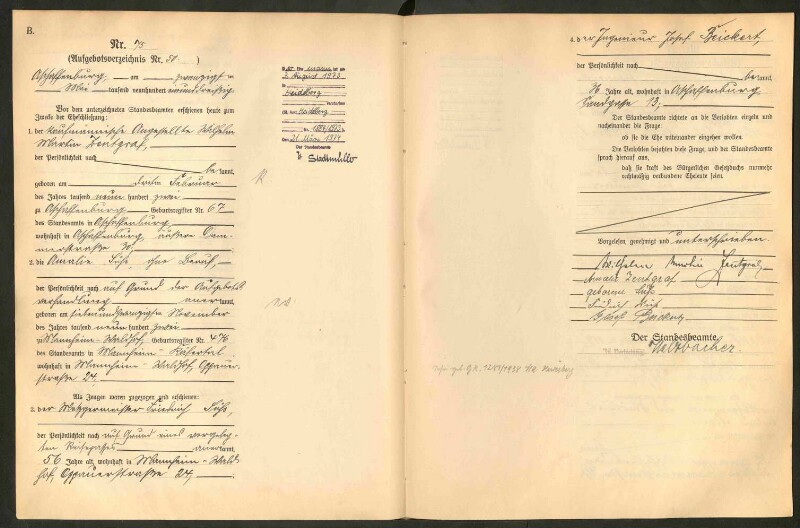 B.
Nr. 75
(Aufgebotsverzeichnis Nr. 51 )
Aschaffenburg, am zwanzigsten
Mai tausend neunhundert neununddreißig
Vor dem unterzeichneten Standesbeamten erschienen heute zum
Zwecke der Eheschließung:
1. der kaufmännische Angestellte Wilhelm
Martin Zentgraf,
der Persönlichkeit nach
be kannt,
geboren am dritten Februar
des Jahres tausend neun hundert zwei
zu Aschaffenburg, Geburtsregister Nr. 67
des Standesamts in Aschaffenburg
wohnhaft in Aschaffenburg, äußere Dam-
merstraße 30,
2. die Amalie Süß, ohne Beruf,
der Persönlichkeit nach auf Grund der Aufgebots
verhandlung anerkannt,
geboren am siebenundzwanzigsten November
des Jahres tausend neun hundert zwei
zu Mannheim-Waldhof, Geburtsregister Nr. 476
des Standesamts in Mannheim-Käfertal
wohnhaft in Mannheim-Waldhof, Oppauer-
straße 24,
Als Zeugen waren zugezogen und erschienen:
3. der Metzgermeister Friedrich Süß,
der Persönlichkeit nach auf Grund eines vorgeleg-
ten Reisepasses anerkannt,
56 Jahre alt, wohnhaft in Mannheim-Wald
hof, Oppauerstraße 24,
2. August 1973
in Heidelberg
Heidelberg
Nr. 1884/1973
Der Standesbeamte
4. der Ingenieur Josef Beickert,
der Persönlichkeit nach
be kannt,
36 Jahre alt, wohnhaft in Aschaffenburg
Sandgasse 13,
Der Standesbeamte richtete an die Verlobten einzeln und
nacheinander die Frage:
ob sie die Ehe miteinander eingehen wollen.
Die Verlobten bejahten diese Frage, und der Standesbeamte
sprach hierauf aus,
daß sie kraft des Bürgerlichen Gesetzbuchs nunmehr
rechtmäßig verbundene Eheleute seien.
Vorgelesen, genehmigt und unterschrieben.
Wilhelm Martin Zentgraf
Amalie Zentgraf
geborene Süß
Josef Beickert
Der Standesbeamte.